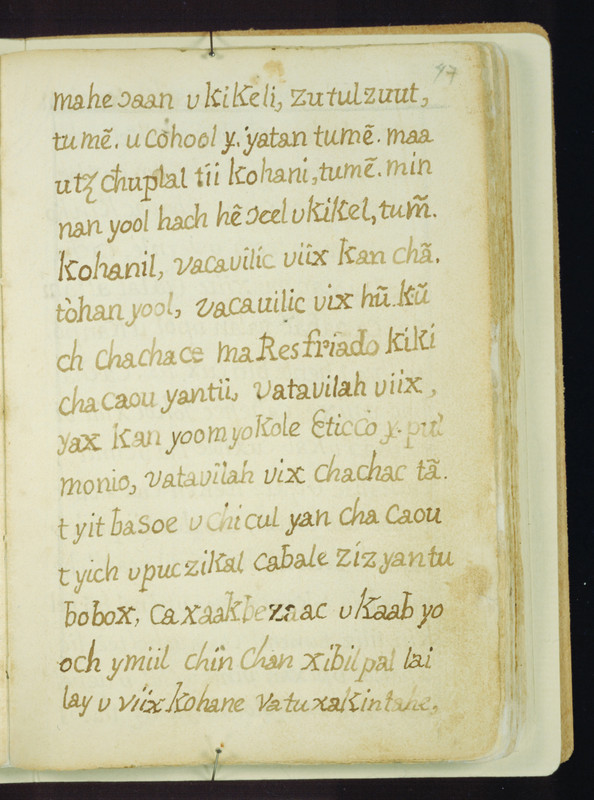 47
mahe ɔaan v kikeli, zutulzuut,
tumẽ. u cohool y. yatan tumẽ. maa
utz chuplal tii kohani, tumẽ. min
nan yool hach hẽ ɔeel v kikel, tum̃.
kohanil, vacavilic viix kan chã.
tòhan yool, vacauilic vix hũ. kũ
ch chachace ma Resfriado kiki
chacaou yantii, vatavilah viix,
yax kan yoom yokole Eticco y. pul
monio, vatavilah vix chachac tã.
t yit basoe v chicul yan cha caou
t yich v puczikal cabale zíz yan tu
bobox, ca xaakbezaac v kaab yo
och ymiil chiin chan xibilpal lai
lay v viix kohane vatu xakintahe,